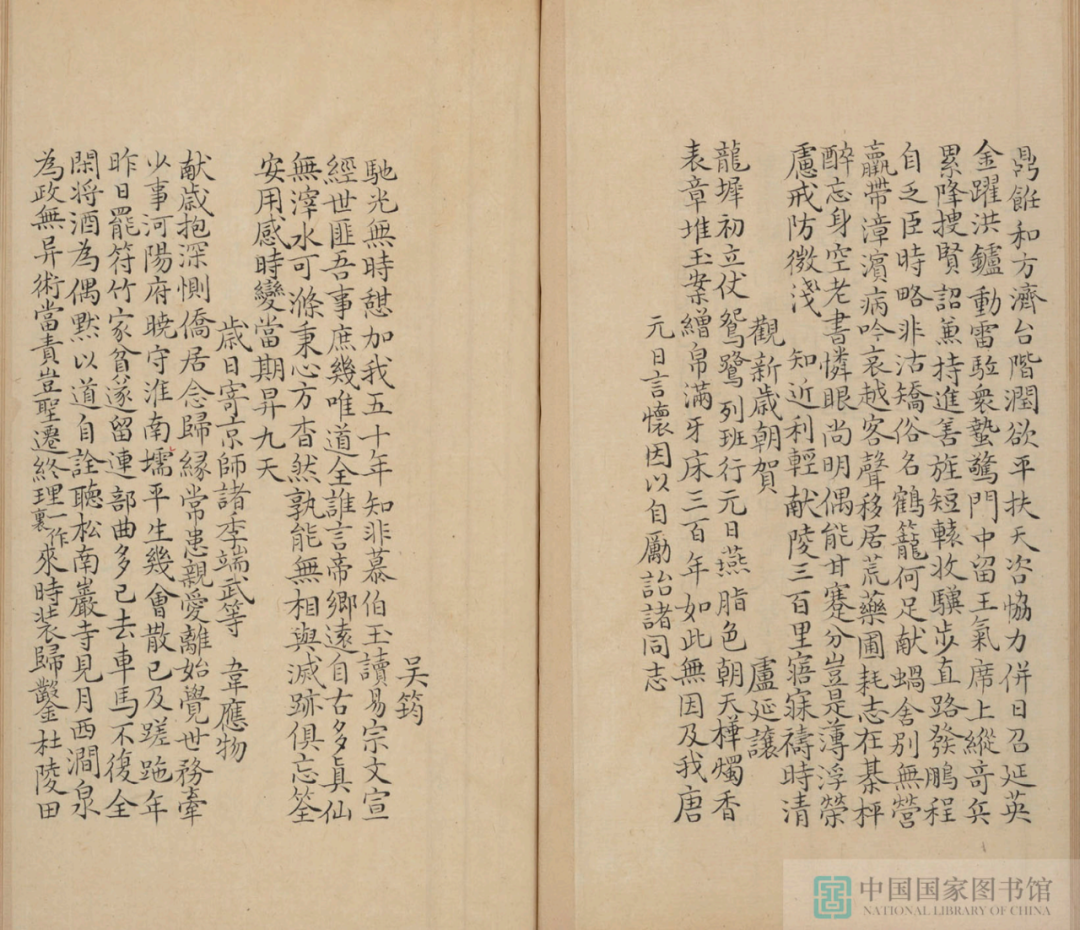 鼎飪和方濟台階潤欲平扶天咨恊力併日召延英
金躍洪鑪動雷駈衆蟄驚門中留王氣席上縱奇兵
累降搜賢詔蒹持進善旌短轅收驥步直路發鵬程
自乏臣時略非沽矯俗名鶴籠何足献蝸舍别無營
羸帶漳濱病吟哀越客聲移居荒藥圃耗志在棊枰
醉忘身空老書憐眼尚明偶能甘蹇分豈是薄浮榮
慮戒防微淺 知近利輕献陵三百里寤寐禱時清
觀新歲朝賀 盧延讓
龍墀初立仗鴛鷺列班行元日燕脂色朝天樺燭香
表章堆玉案繒帛滿牙床三百年如此無因及我唐
元日言懷因以自勵詒諸同志
吴筠
馳光無時憇加我五十年知非慕伯玉讀易宗文宣
經世匪吾事庶幾唯道全誰言帝鄉遠自古多眞仙
無滓水可滌秉心方杳然孰能無相與滅跡俱忘筌
安用感時變當期昇九天
歲日寄京師諸李端武等 韋應物
献歲抱深惻僑居念歸緣常患親愛離始覺世務牽
少事河陽府曉守淮南壖平生幾會散已及蹉跎年
昨日罷符竹家貧遂留連部曲多已去車馬不復全
閑将酒為偶默以道自詮聽松南巖寺見月西澗泉
為政無异術當責豈聖遷終理一作裏來時装歸鑿杜陵田
中国国家图书馆
NATIONAL LIBRARY OF CHINA